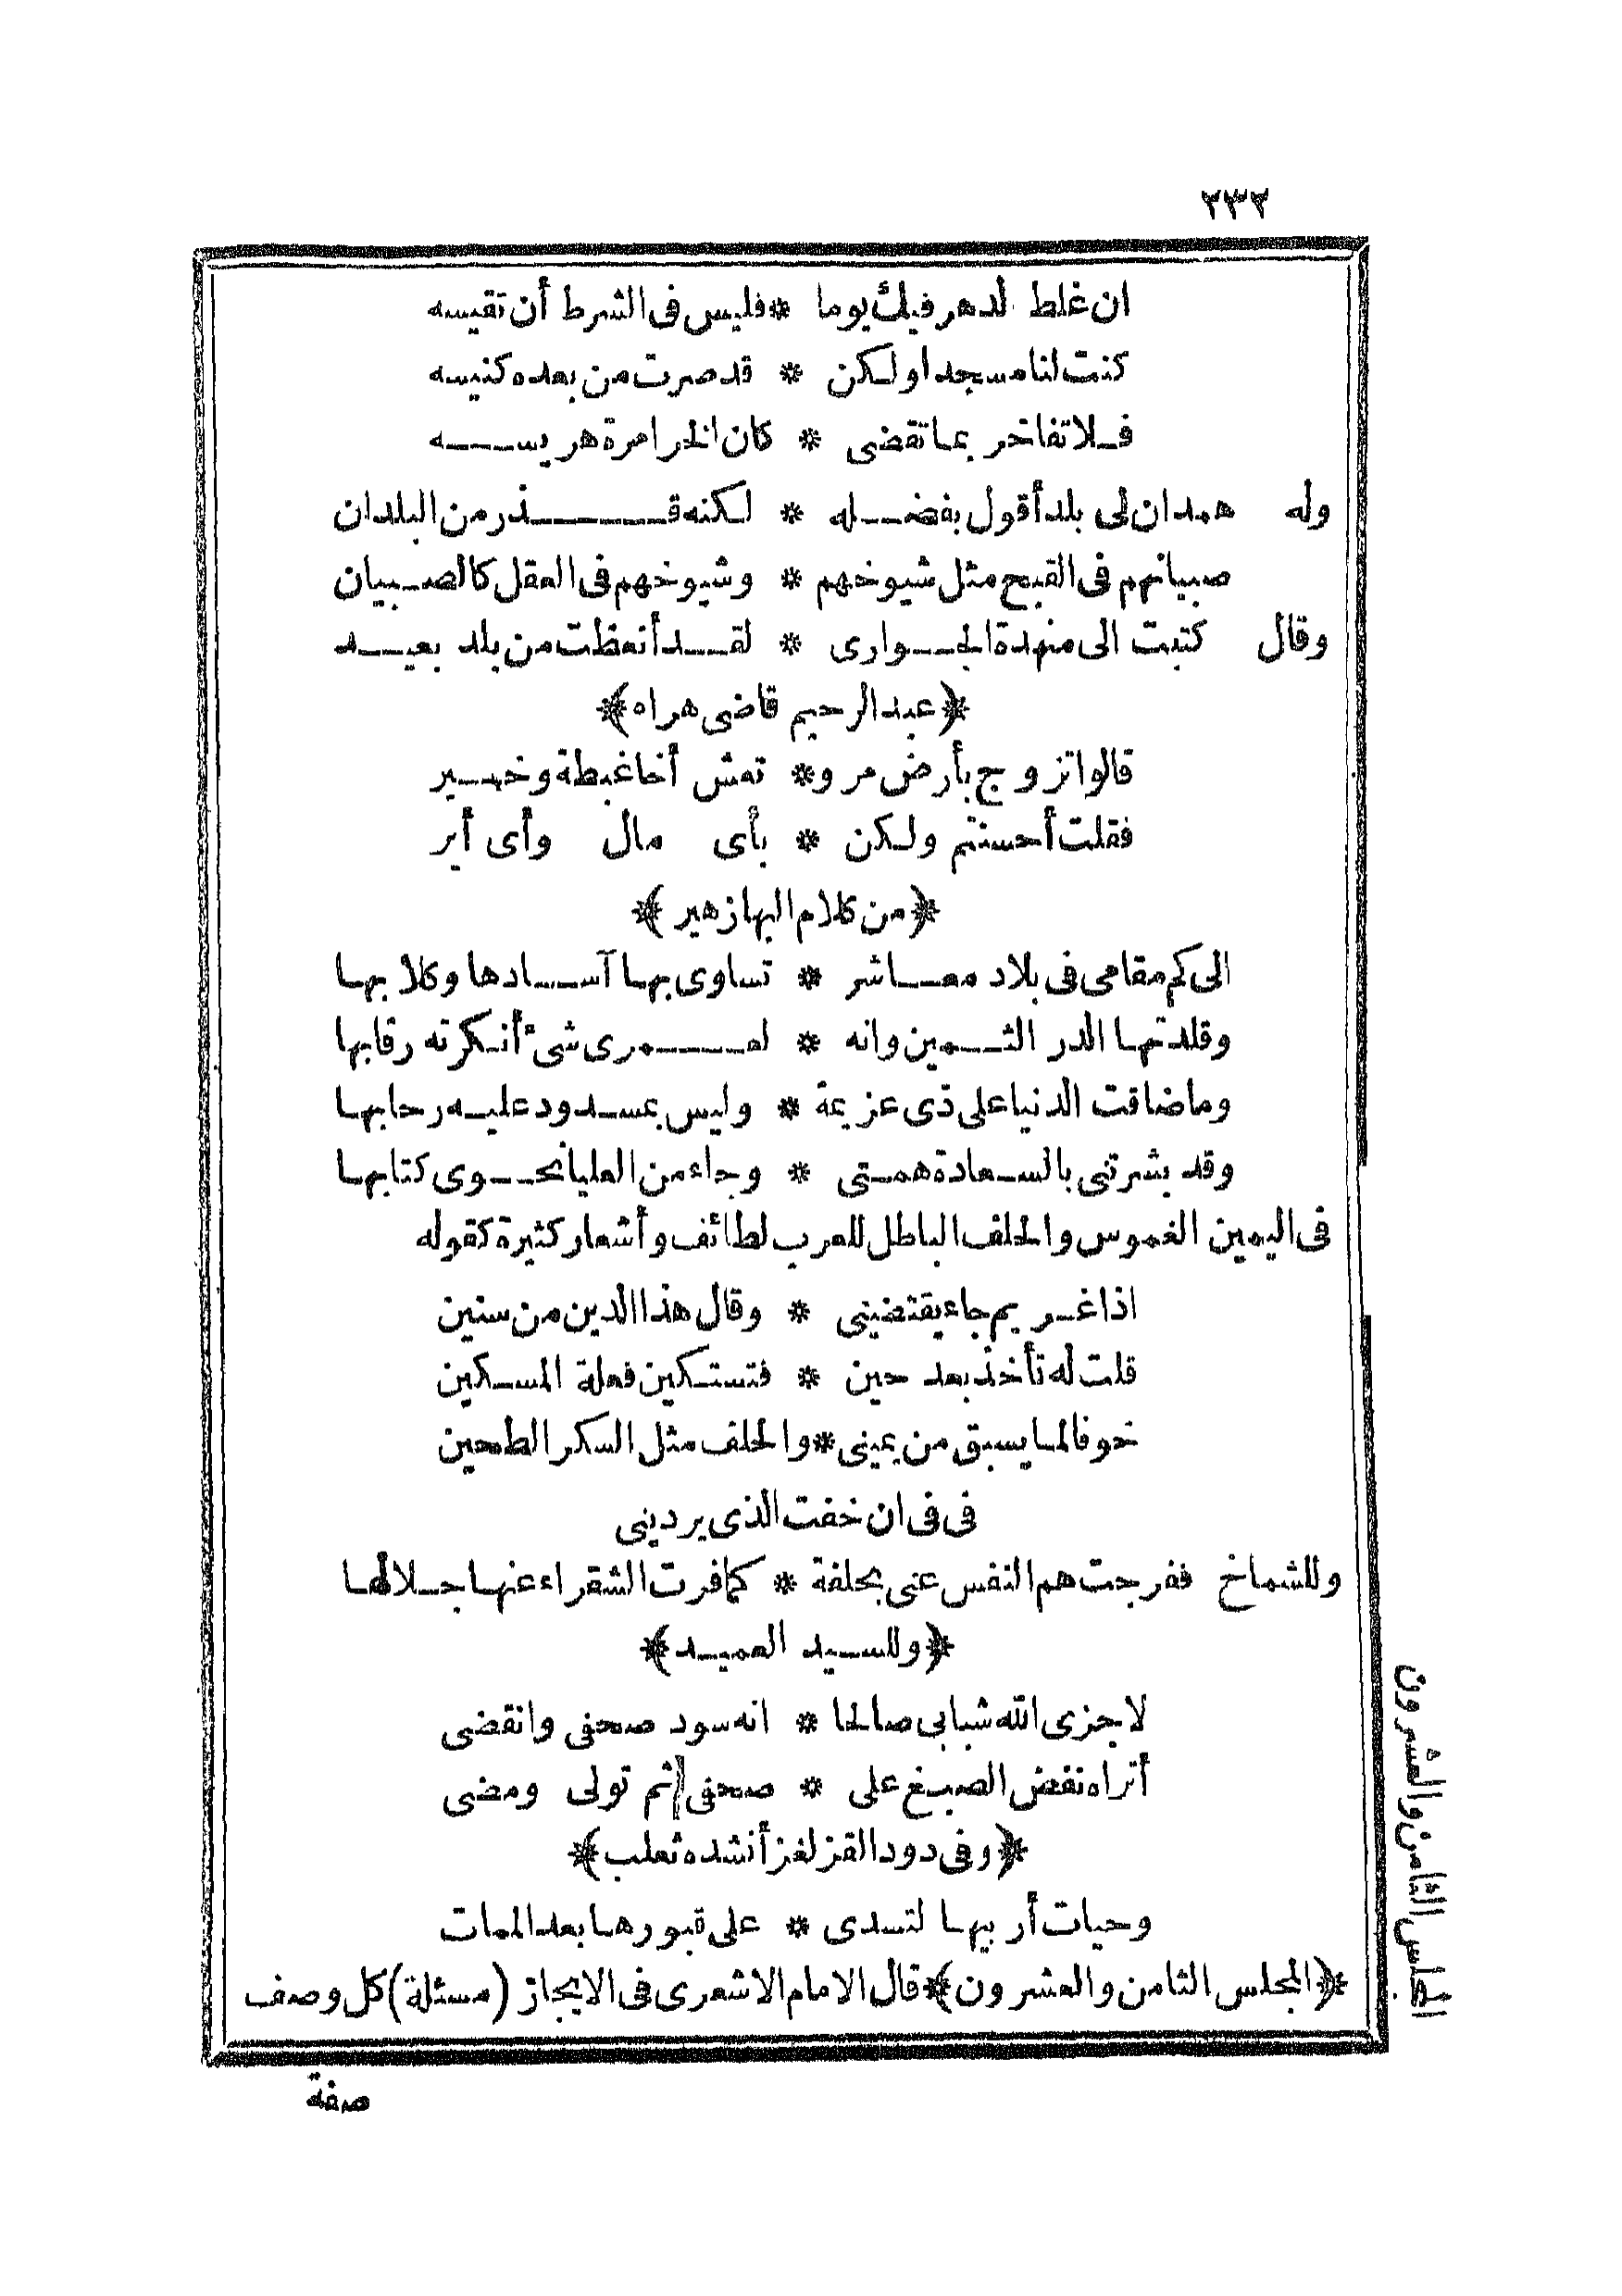 ٢٣٢
ان غلط لدهر فيك يوما * فليس فى الشرط أن تقيسه
كنت لنا مسجدا ولكن * قد صرت من بعده كنيسه
فلا تفاخر بما تقضى * كان الخرا مرة هريسه
وله همدان لى بلد أقول بفضله * لكنه قذر من البلدان
صبيانهم فى القبح مثل شيوخهم * وشيوخهم فى العقل كالصبيان
وقال كتبت الى منهدة الجوارى * لقد أنعظت من بلد بعيد
﴿عبد الرحيم قاضى هراه﴾
قالوا تزوج بأرض مرو * تعش أخا غبطة وخير
فقلت أحسنتم ولكن * بأى مال وأى أير
﴿من كلام البها زهير﴾
الى كم مقامى فى بلاد معاشر * تساوى بها آسادها وكلابها
وقلدتها الدر الثمين وانه * لعمرى شئ أنكرته رقابها
وما ضاقت الدنيا على ذى عزيمة * وليس بمسدود عليه رحابها
وقد بشرتنى بالسعادة همتى * وجاء من العليا نحوى كتابها
فى اليمين الغموس والحلف الباطل للعرب لطائف وأشعار كثيرة كقوله
اذا غريم جاء يقتضينى * وقال هذا الدين من سنين
قلت له تأخذ بعد حين * فتستكين فعلة المسكين
خوفا لما يسبق من يمينى * والحلف مثل السكر الطحين
فى فى ان خفت الذى يردينى
وللشماخ ففرجت هم النفس عنى بحلفة * كما فرت الشقراء عنها جلالها
﴿وللسيد العميد﴾
لا جزى الله شبابى صالحا * انه سود صحفى وانقضى
أتراه نفض الصبغ على * صحفى ثم تولى ومضى
﴿وفى دود القز لغز أنشده ثعلب﴾
وحيات أربيها لتسدى * على قبورها بعد الممات
﴿المجلس الثامن والعشرون﴾ قال الامام الاشعرى فى الايجاز (مسئلة) كل وصف
المجلس الثامن والعشرون
صفة